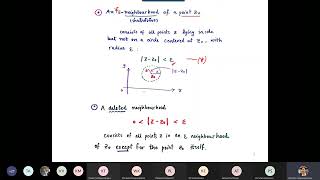 An ε-neighbourhood of a point z₀
consists of all points z lying inside
but not on a circle centered at z₀, with
radius ε:
|z-z₀| < ε —(*)
y
|z-z₀|
z₀
x
① A deleted neighbourhood
0 < |z-z₀| < ε
consists of all points z in an ε neighbourhood
of z₀ except for the point z₀ itself.
K AT PS